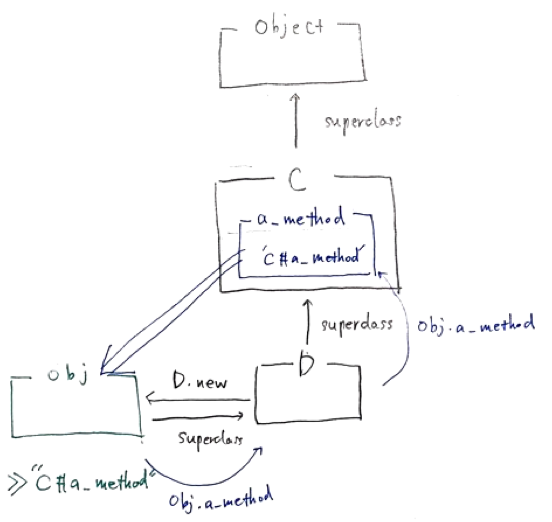 Object
superclass
C
a_method
'C#a_method'
superclass
Obj.a_method
Obj
D.new
D
superclass
>> "C#a_method"
Obj.a_method